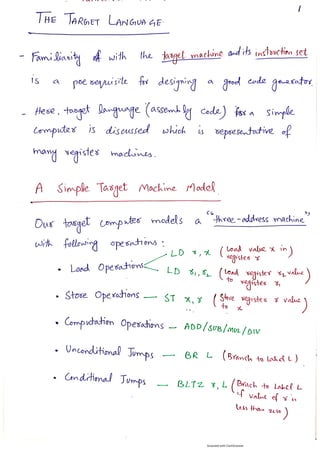 1
THE TARGET LANGUAGE
- Familiarity with the target machine and its instruction set
is a prerequisite for designing a good code generator.
- Here, target language (assembly code) for a simple
computer is discussed which is representative of
many register machines.
A Simple Target Machine Model
Our target computer models a "three-address machine"
with following operations:
• Load Operations LD r, x (Load value x in register r)
LD r1, r2 (Load register r2 value to register r1)
• Store Operations — ST x, r (Store register r value to x)
• Computation Operations — ADD/SUB/MUL/DIV
• Unconditional Jumps — BR L (Branch to Label L)
• Conditional Jumps — BLTZ r, L (Branch to Label L if value of r is less than zero)
Scanned with CamScanner